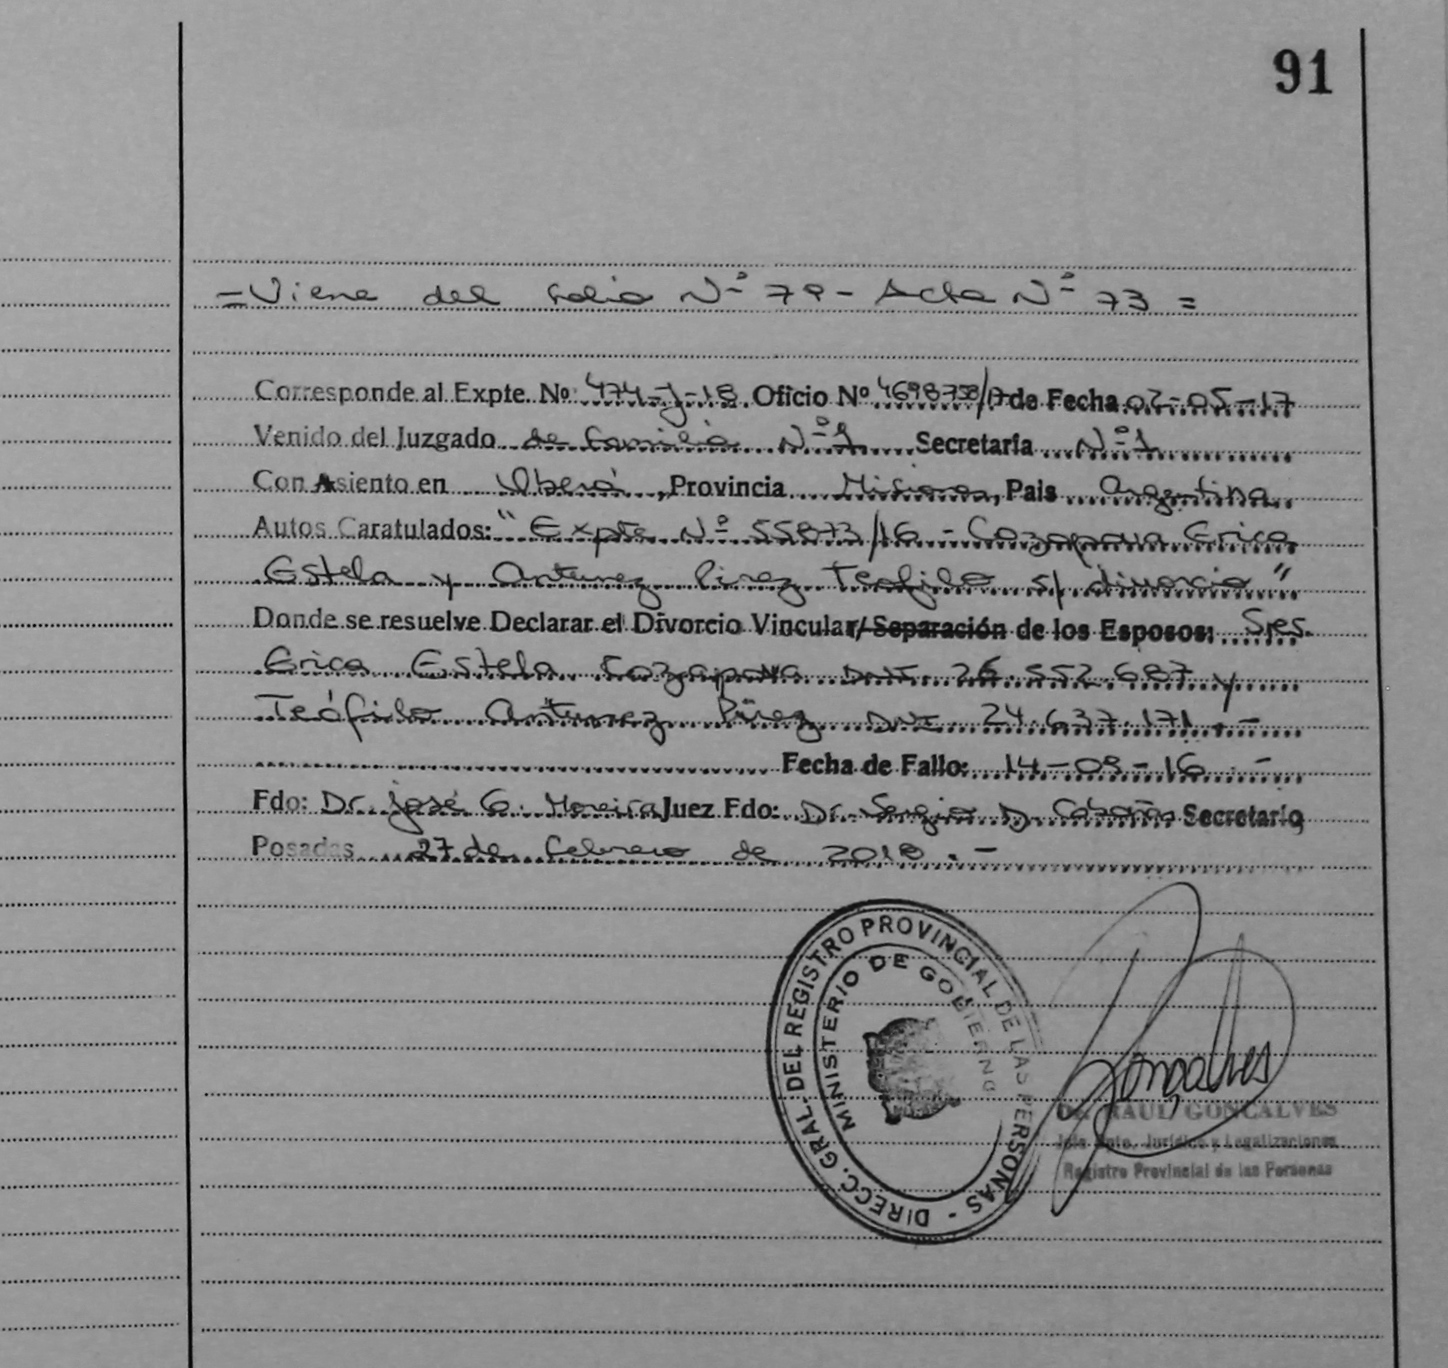 91
= Viene del folio Nº 79 - Acta Nº 73 =
Corresponde al Expte. Nº 474-J-18. Oficio Nº 4698758/17 de Fecha 02-05-17
Venido del Juzgado de Familia Nº 1 Secretaría Nº 1
Con Asiento en Oberá, Provincia Misiones, Pais Argentina
Autos Caratulados: "Expte Nº 55873/16 - Cozapava Erica
Estela y Antunez Pirez Teofilo s/ divorcio"
Donde se resuelve Declarar el Divorcio Vincular/ Separación de los Esposos: Sres.
Erica Estela Cozapava DNI 26.552.687 y
Teófilo Antunez Pirez DNI 24.637.171.-
Fecha de Fallo: 14-09-16.-
Fdo: Dr. José G. Moreira Juez Fdo: Dr. Sergio D. Secretario
Posadas 27 de febrero de 2018.-
DIRECC. GRAL. DEL REGISTRO PROVINCIAL DE LAS PERSONAS -
MINISTERIO DE GOBIERNO
Gonçalves
Dr. RAUL GONCALVES
Jefe Dpto. Jurídico y Legalizaciones
Registro Provincial de las Personas